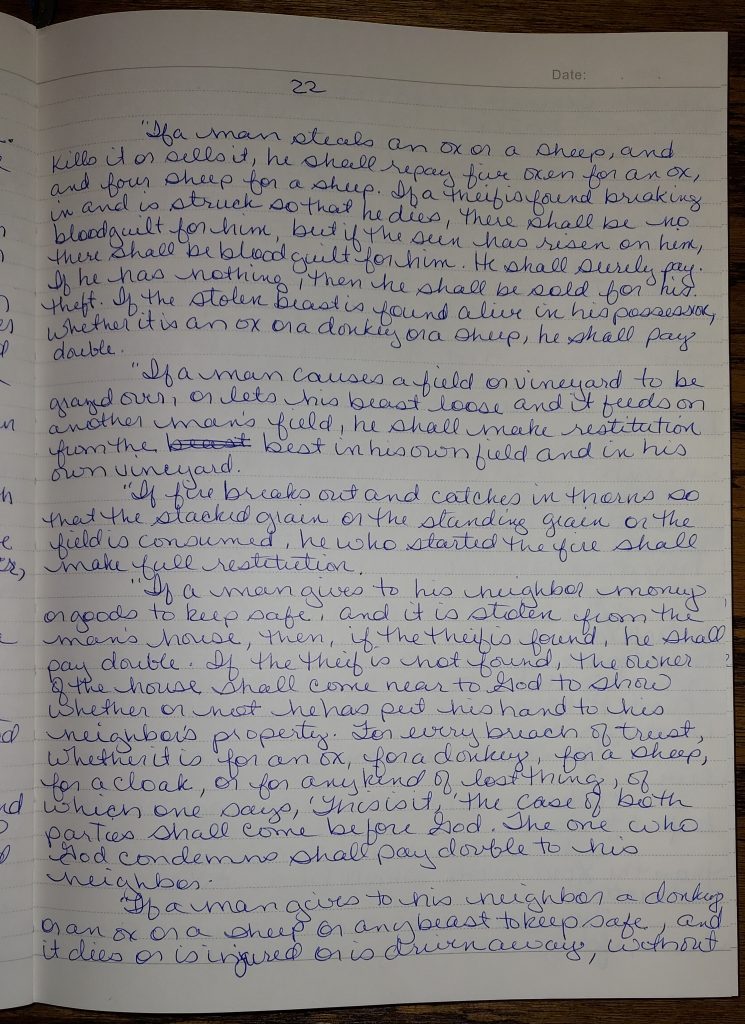 Date:
22
"If a man steals an ox or a sheep, and
kills it or sells it, he shall repay five oxen for an ox,
and four sheep for a sheep. If a theif is found breaking
in and is struck so that he dies, there shall be no
bloodguilt for him, but if the sun has risen on him,
there shall be bloodguilt for him. He shall surely pay.
If he has nothing, then he shall be sold for his
theft. If the stolen beast is found alive in his possession,
whether it is an ox or a donkey or a sheep, he shall pay
double.
"If a man causes a field or vineyard to be
grazed over, or lets his beast loose and it feeds on
another man's field, he shall make restitution
from the beast best in his own field and in his
own vineyard.
"If fire breaks out and catches in thorns so
that the stacked grain or the standing grain or the
field is consumed, he who started the fire shall
make full restitution.
"If a man gives to his neighbor money
or goods to keep safe, and it is stolen from the
man's house, then, if the theif is found, he shall
pay double. If the theif is not found, the owner
of the house shall come near to God to show
whether or not he has put his hand to his
neighbor's property. For every breach of trust,
whether it is for an ox, for a donkey, for a sheep,
for a cloak, or for any kind of lost thing, of
which one says, 'This is it,' the case of both
parties shall come before God. The one who
God condemns shall pay double to his
neighbor.
"If a man gives to his neighbor a donkey
or an ox or a sheep or any beast to keep safe, and
it dies or is injured or is driven away, without